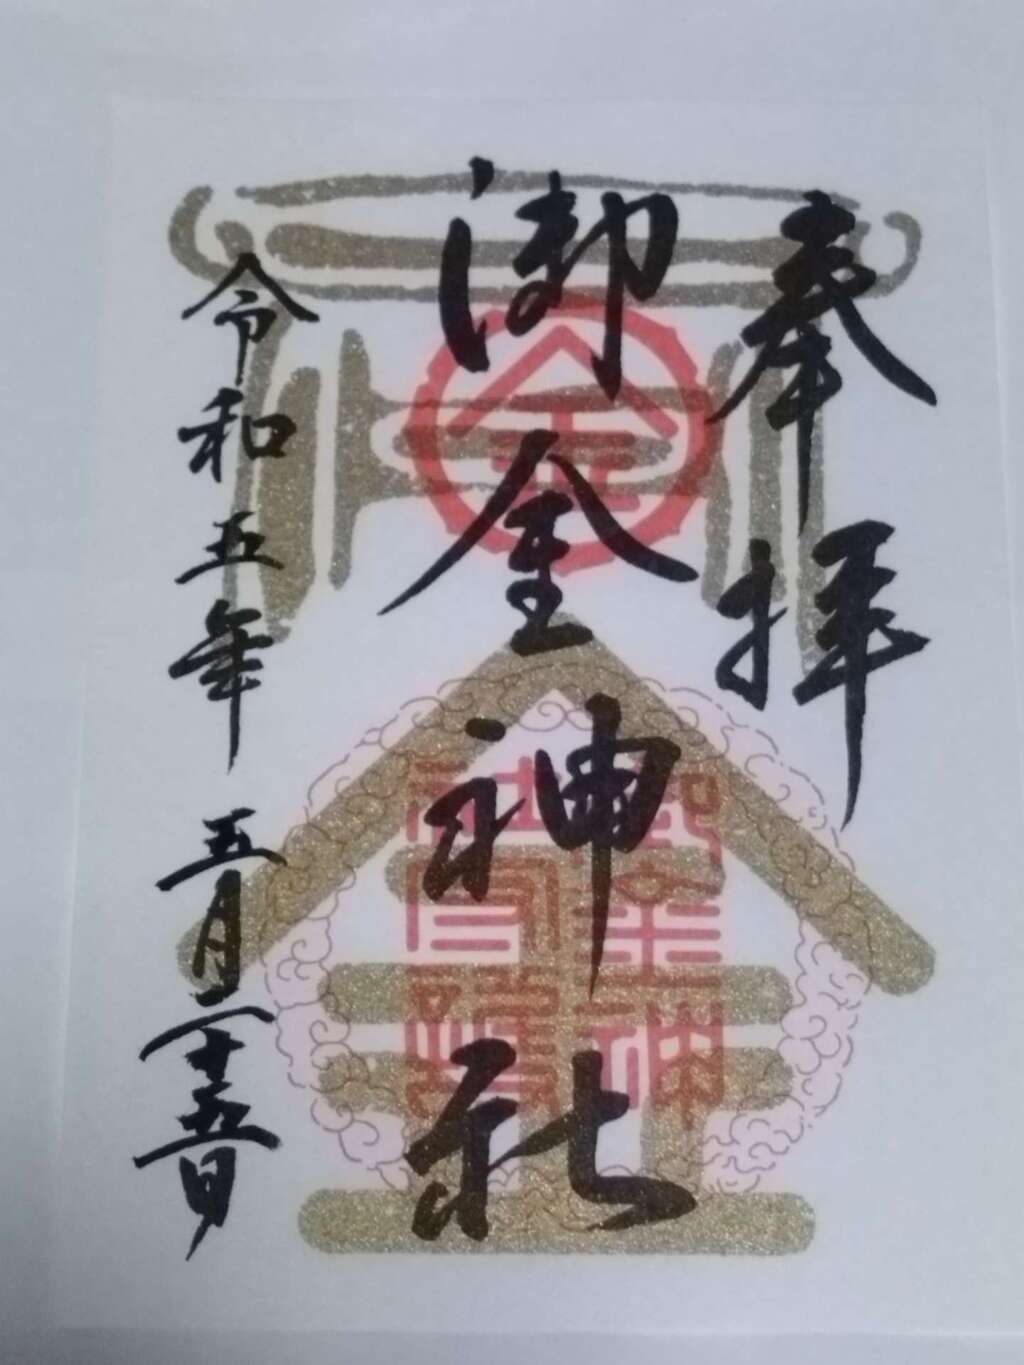 奉拝
御金神社
令和五年 五月二十五日
金
御金神
社寶璽